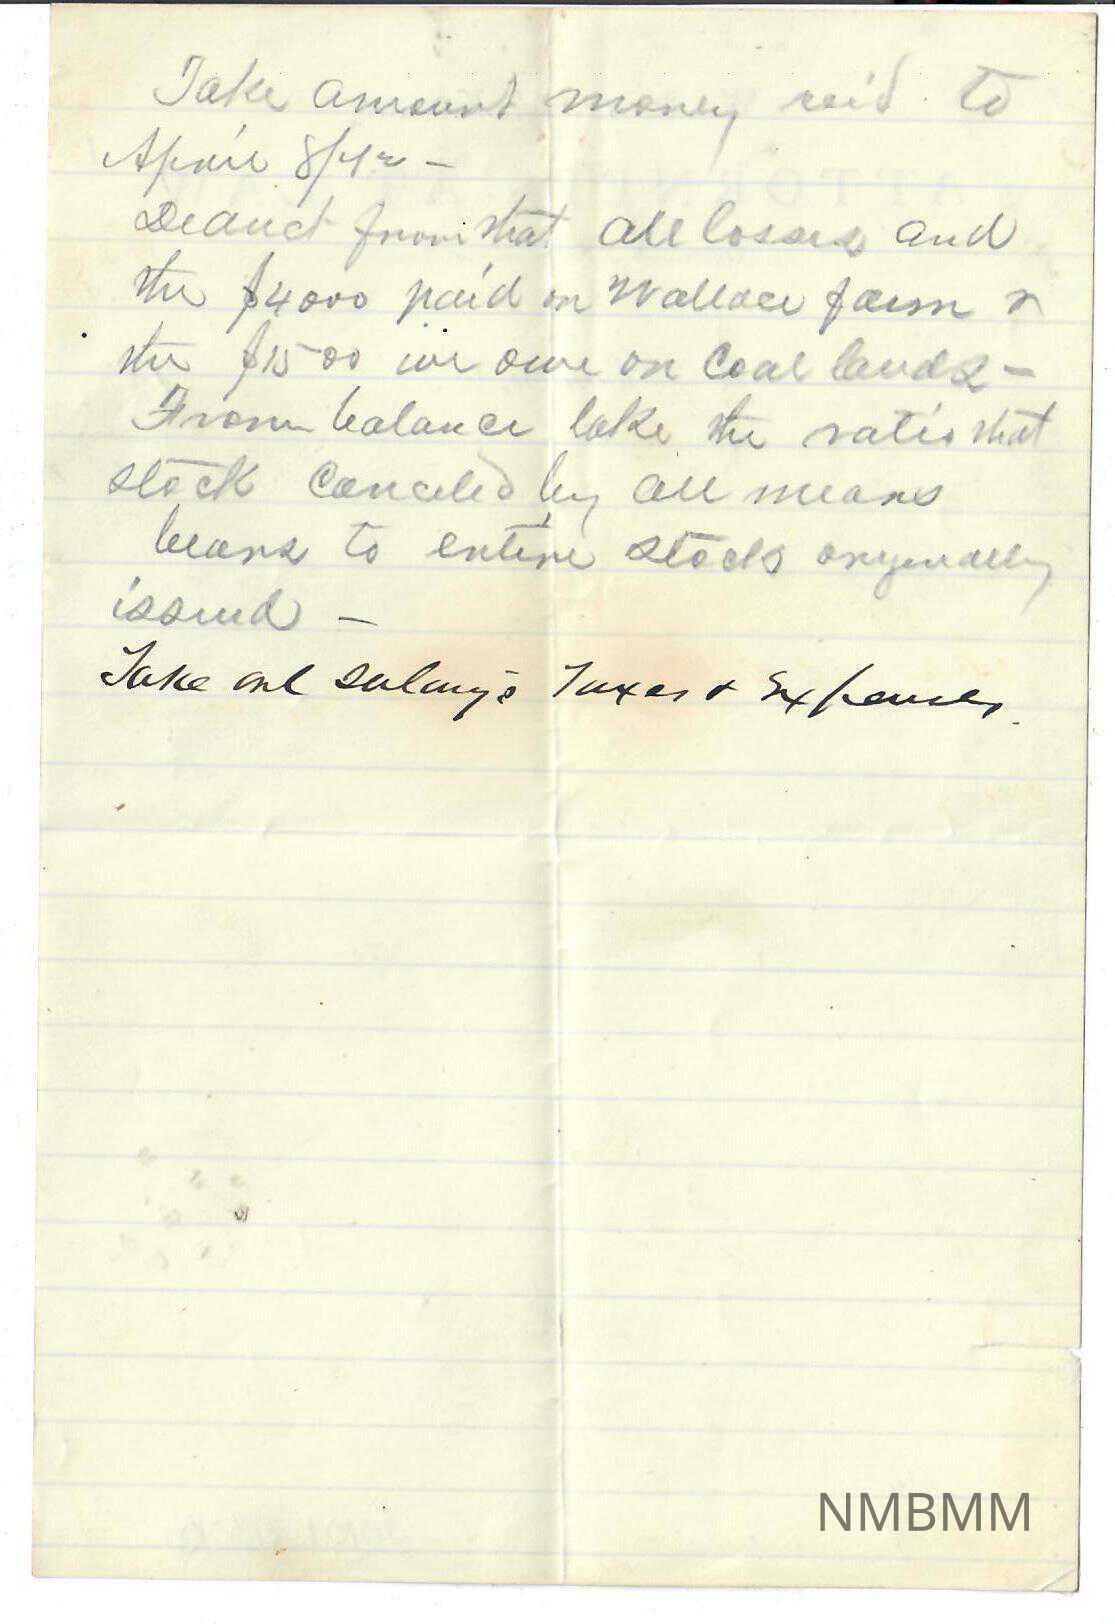 Take amount money rec'd to
April 8/12 –
Deduct from that all losses and
the $4000 paid on Wallace farm &
the $1500 we owe on Coal lands –
From balance take the ratio that
stock canceled by all means
bears to entire stock originally
issued –
Take out salary's Taxes & Expenses.
NMBMM